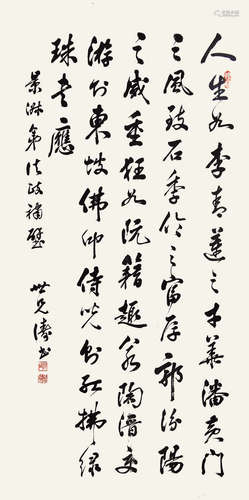 人生如李青蓮之才華潘黄門
之風致石季倫之富厚郭汾陽
之威重狂如阮籍趣若陶潛交
游則東坡佛印侍兒則紅拂綠
珠 應
景淋弟法政補壁
世兄濤书